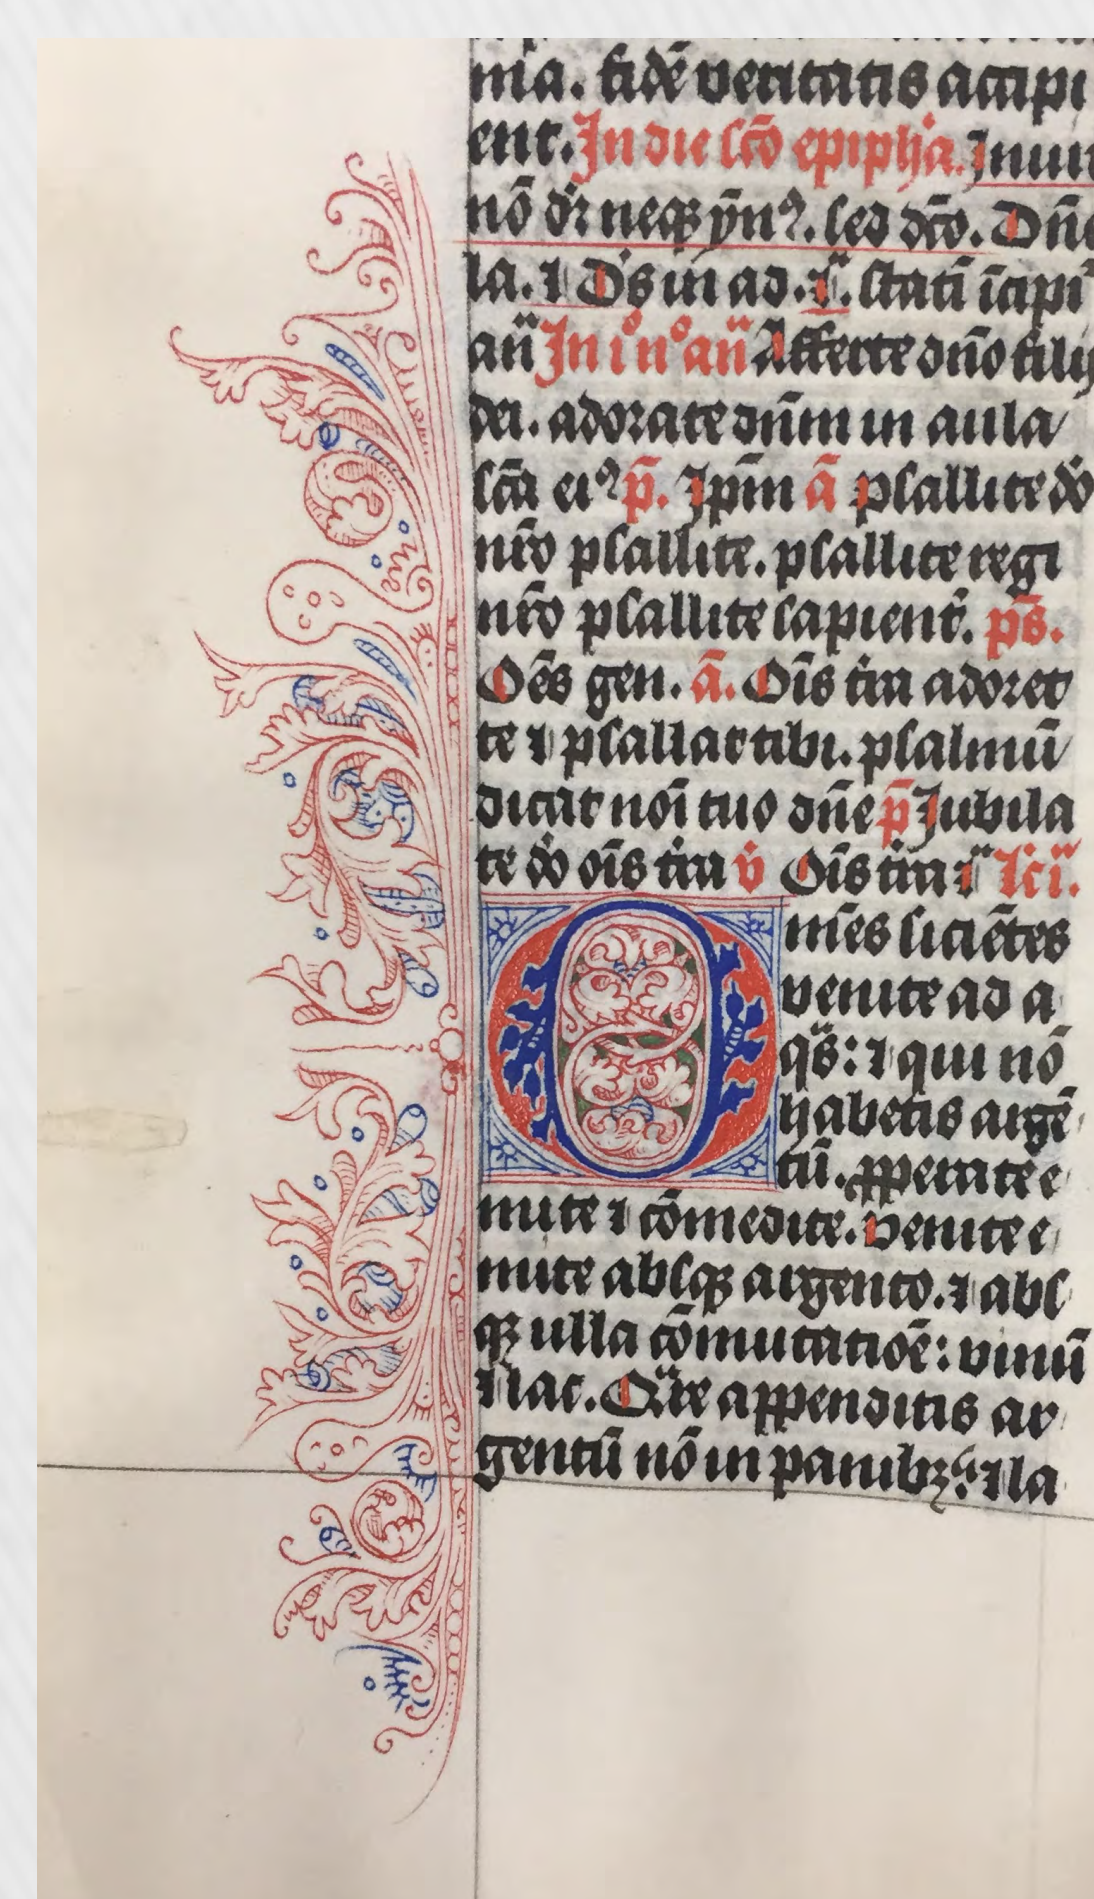 nia. fidē veritatis accipi
ent. In die scō epiphā. Inuit
nō dr̄ neqꝫ ẏnꝰ. sed dc̄o. Dn̄e
la. ⁊ Dˢ in ad. statī īcipit
an̄ In i nº an̄ Afferte dn̄o filij
dei. adorate dn̄m in aula
sc̄a eiꝰ p̄. Ipm̄ ā psallite dō
nr̄o psallite. psallite regi
nr̄o psallite sapient᷑. ps̄.
Oēs gen. ā. Oīs tr̄a adoret
te ⁊ psallat tibi. psalmū
dicat noī tuo dn̄e p̄ Jubila
te dō oīs tr̄a v̄ Oīs tr̄a lc̄i.
Omēs sitiētes
venite ad a
qˢ: ⁊ qui nō
habetis argē
tū. ꝓperate e
mite ⁊ cōmedite. Venite e
mite absqꝫ argento. ⁊ abs
qꝫ ulla cōmutatioē: vinū
⁊ lac. Qͣre appenditis ar
gentū nō in panibꝫ: ⁊ la